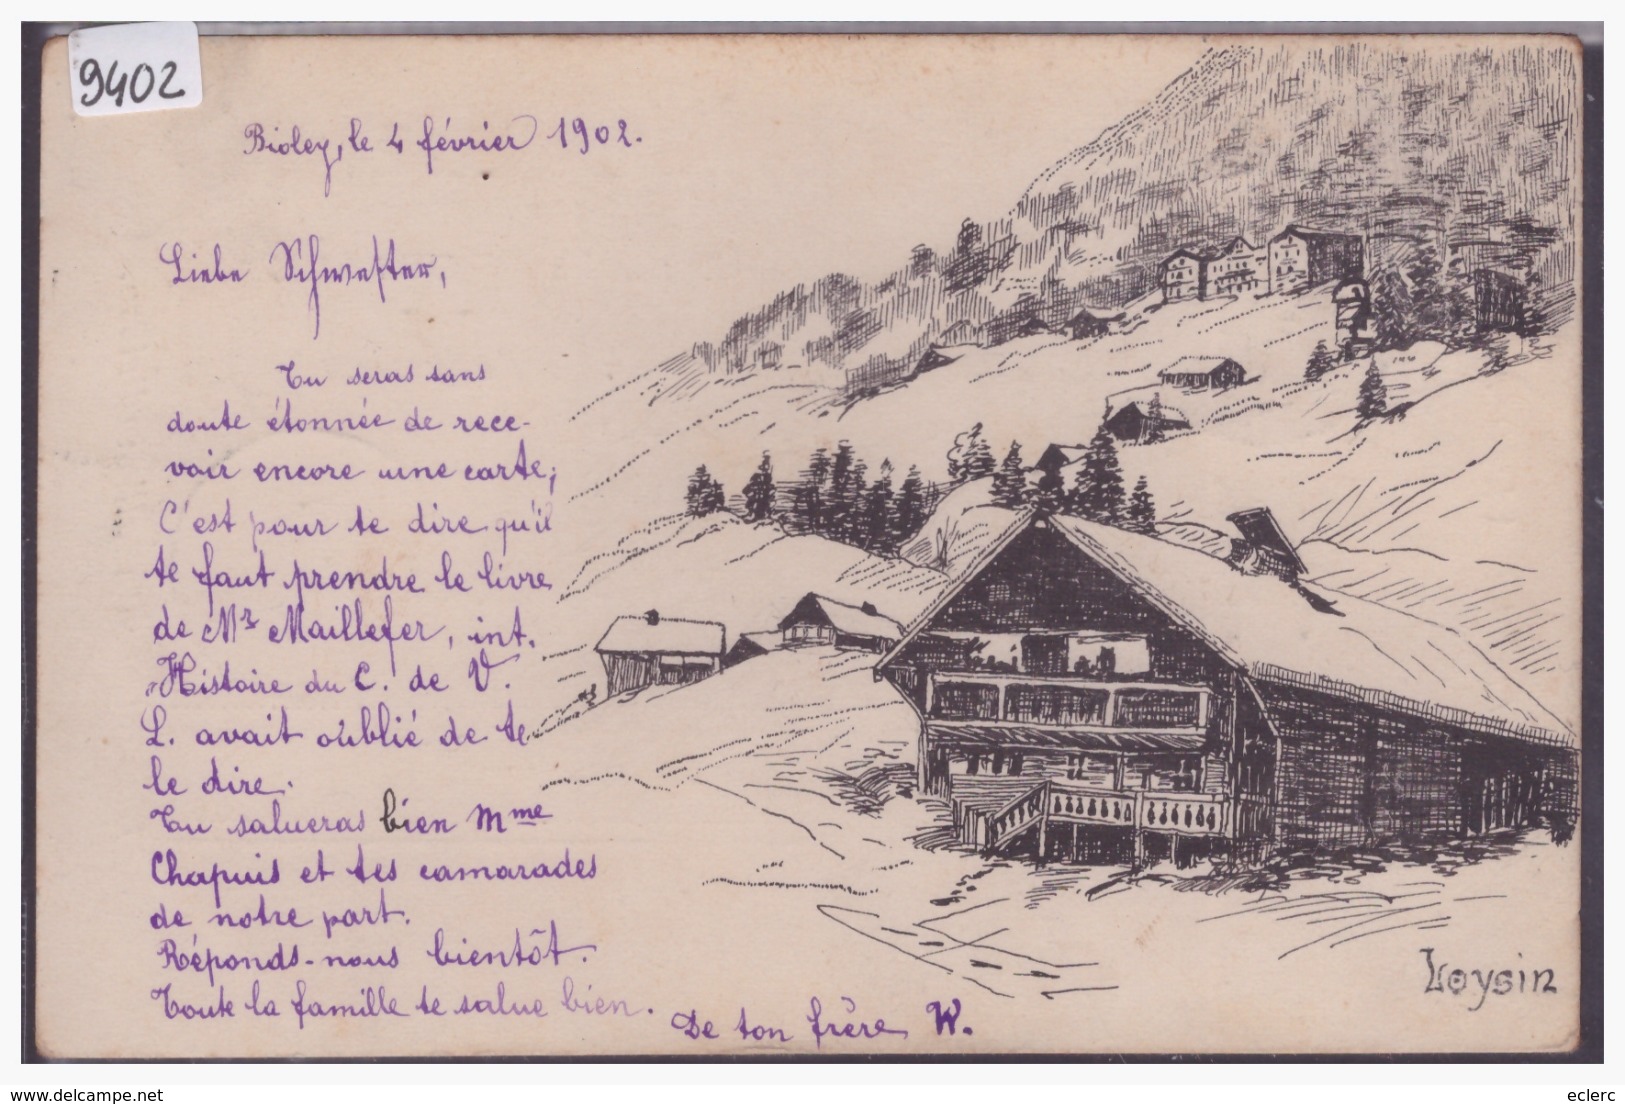 9402
Bioley, le 4 février 1902.
Liebe Schwester,
Tu seras sans
doute étonnée de rece-
voir encore une carte;
C'est pour te dire qu'il
te faut prendre le livre
de Mr Maillefer, int.
Histoire du C. de V.
L. avait oublié de te
le dire.
Tu salueras bien Mme
Chapuis et tes camarades
de notre part.
Réponds-nous bientôt.
Toute la famille te salue bien.
De ton frère W.
Leysin
www.delcampe.net
eclerc